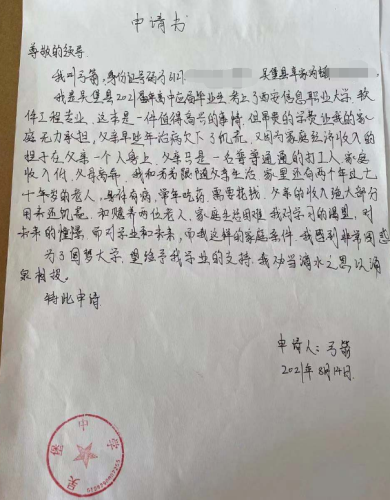 申请书
尊敬的领导
我叫弓箭,身份证号码为612 吴堡县
我是吴堡县2021届高中应届毕业生 考上了西安信息职业大学 软
件工程专业。这本是一件值得高兴的事情,但昂贵的学费让我的家
庭无力承担,父亲早些年治病欠下了饥荒,又因为家庭经济收入的
担子在父亲一个人身上,父亲只是一名普普通通的打工人 家庭
收入低,父母离异,我和弟弟跟随父亲生活 家里还有两个年过七
十岁的老人,身体有病,常年吃药,需要花钱,父亲的收入绝大部分
用来还饥荒,和赡养两位老人,家庭生活困难 我对学习的渴望,对
未来的憧憬,面对学业和未来,而我这样的家庭条件,我感到非常困惑
为了圆梦大学,望给予我学业的支持,我劝当滴水之恩以涌
泉相报。
特此申请
申请人:弓箭
2021年8月14日
吴堡中学